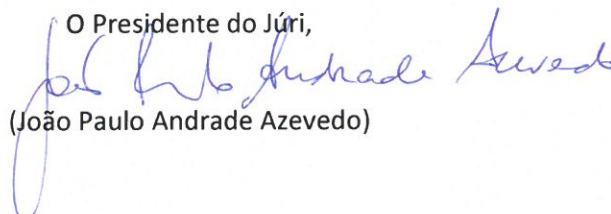 O Presidente do Júri,
João Paulo Andrade Azevedo
(João Paulo Andrade Azevedo)